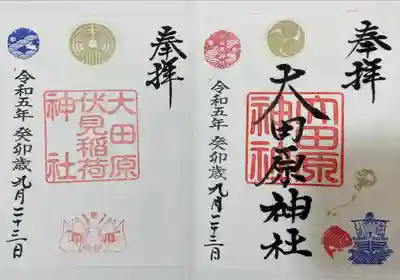 奉拝
大田原神社
大田原
神社
令和五年 癸卯歳 九月二十三日
奉拝
大田原
伏見稲荷
神社
令和五年 癸卯歳 九月二十三日